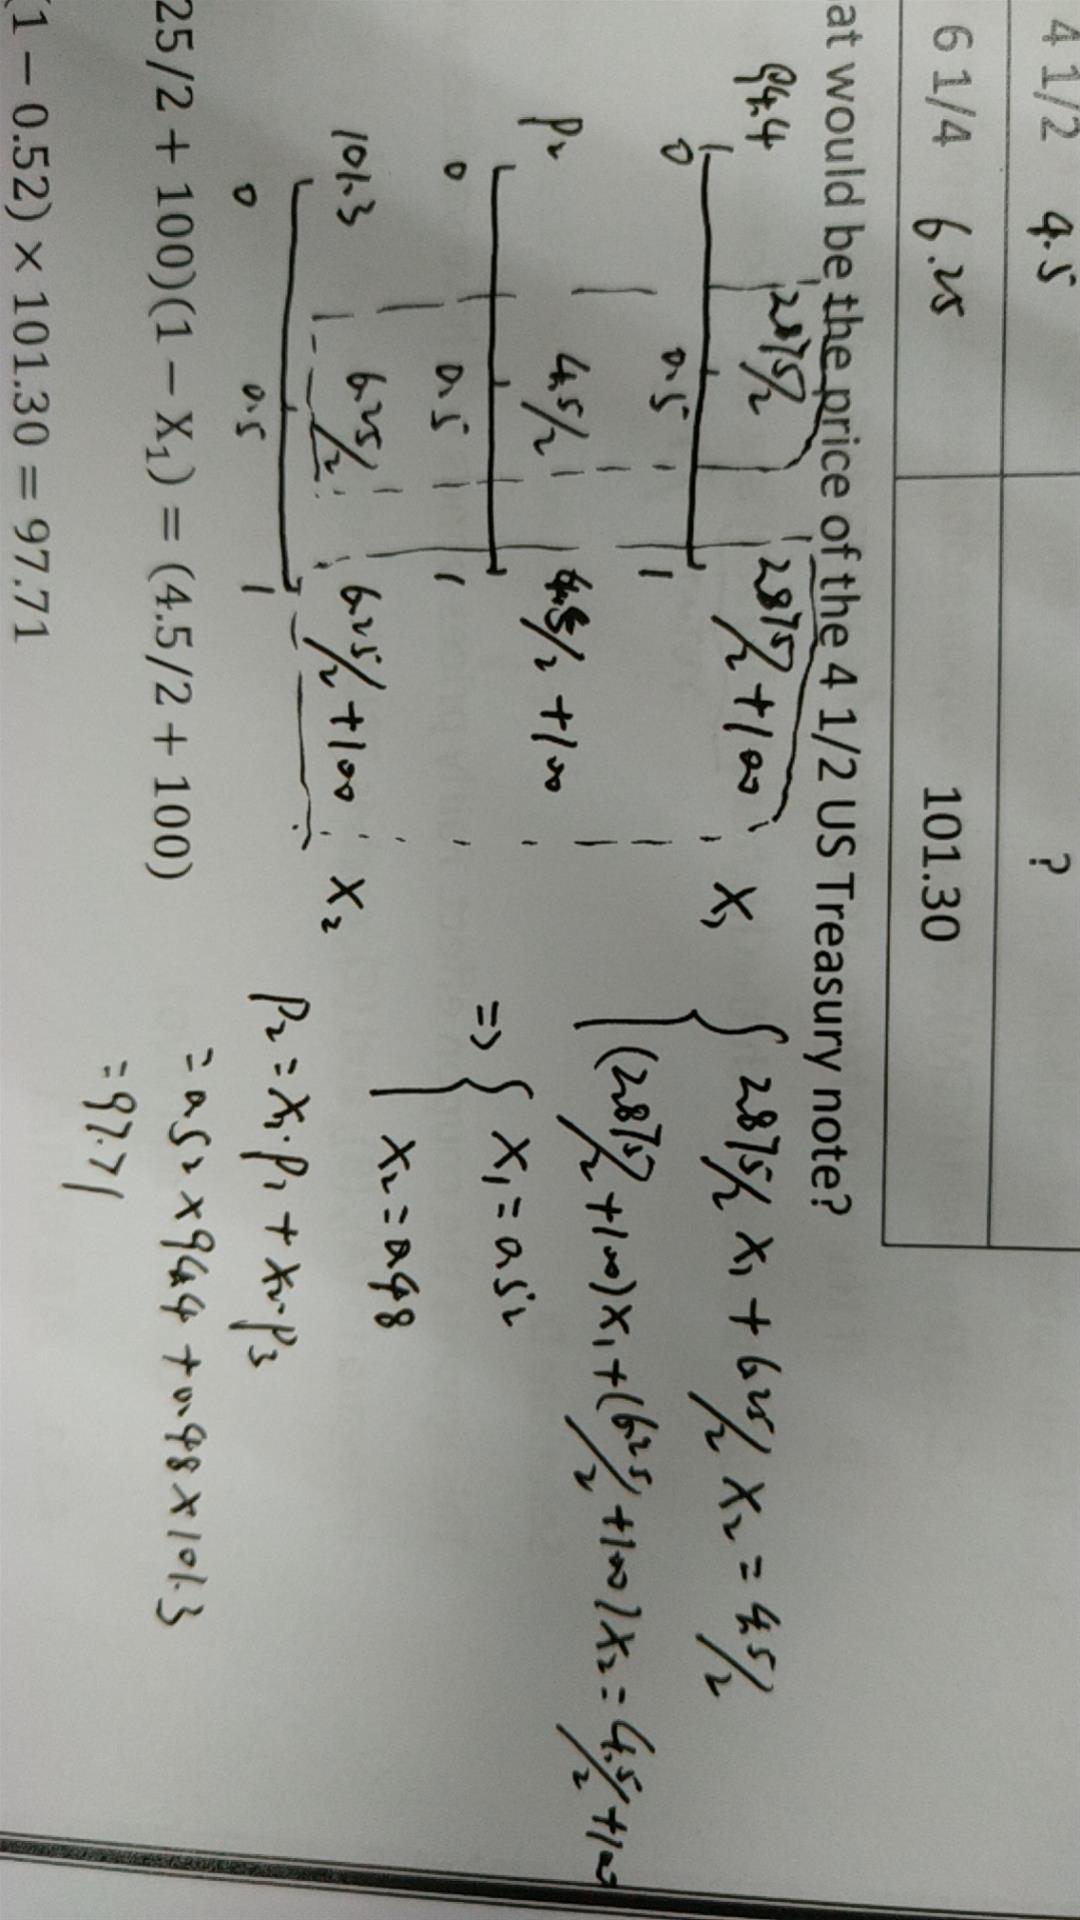 4 1/2 4.5 ?
6 1/4 6.25 101.30
at would be the price of the 4 1/2 US Treasury note?
94.4 2.875/2 2.875/2 +100 X₁
0 0.5 1
P₂ 4.5/2 4.5/2 +100
0 0.5 1
101.3 6.25/2 6.25/2 +100 X₂
0 0.5 1
{ 2.875/2 X₁ + 6.25/2 X₂ = 4.5/2
(2.875/2 +100)X₁ + (6.25/2 +100)X₂ = 4.5/2 +100
=> { X₁ = 0.52
X₂ = 0.48
P₂ = X₁·P₁ + X₂·P₃
= 0.52 × 94.4 + 0.48 × 101.3
= 97.71
25/2 + 100)(1 − X₁) = (4.5/2 + 100))
(1 − 0.52) × 101.30 = 97.71